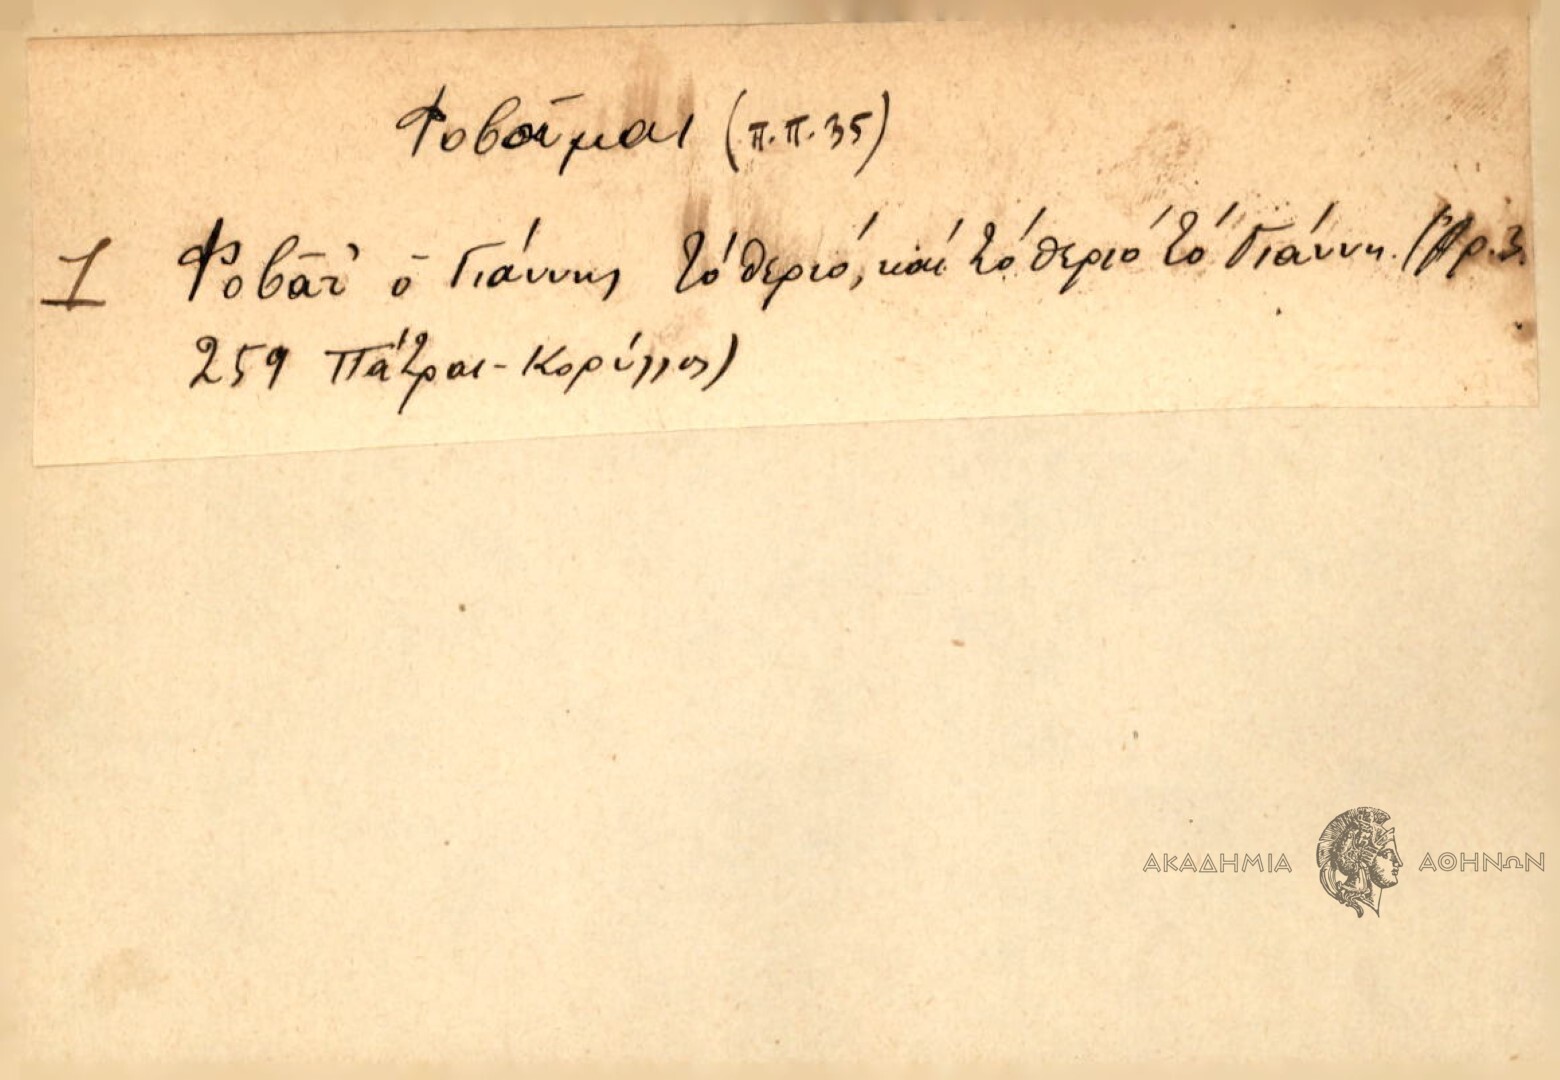 Φοβοῦμαι (π.π.35)
1 Φοβᾶτ' ὁ Γιάννης τό θεριό, καί τό θεριό τό Γιάννη. (Ἀρ.3.
259 Πάτραι - Κορύλλος)
ΑΚΑΔΗΜΙΑ ΑΘΗΝΩΝ